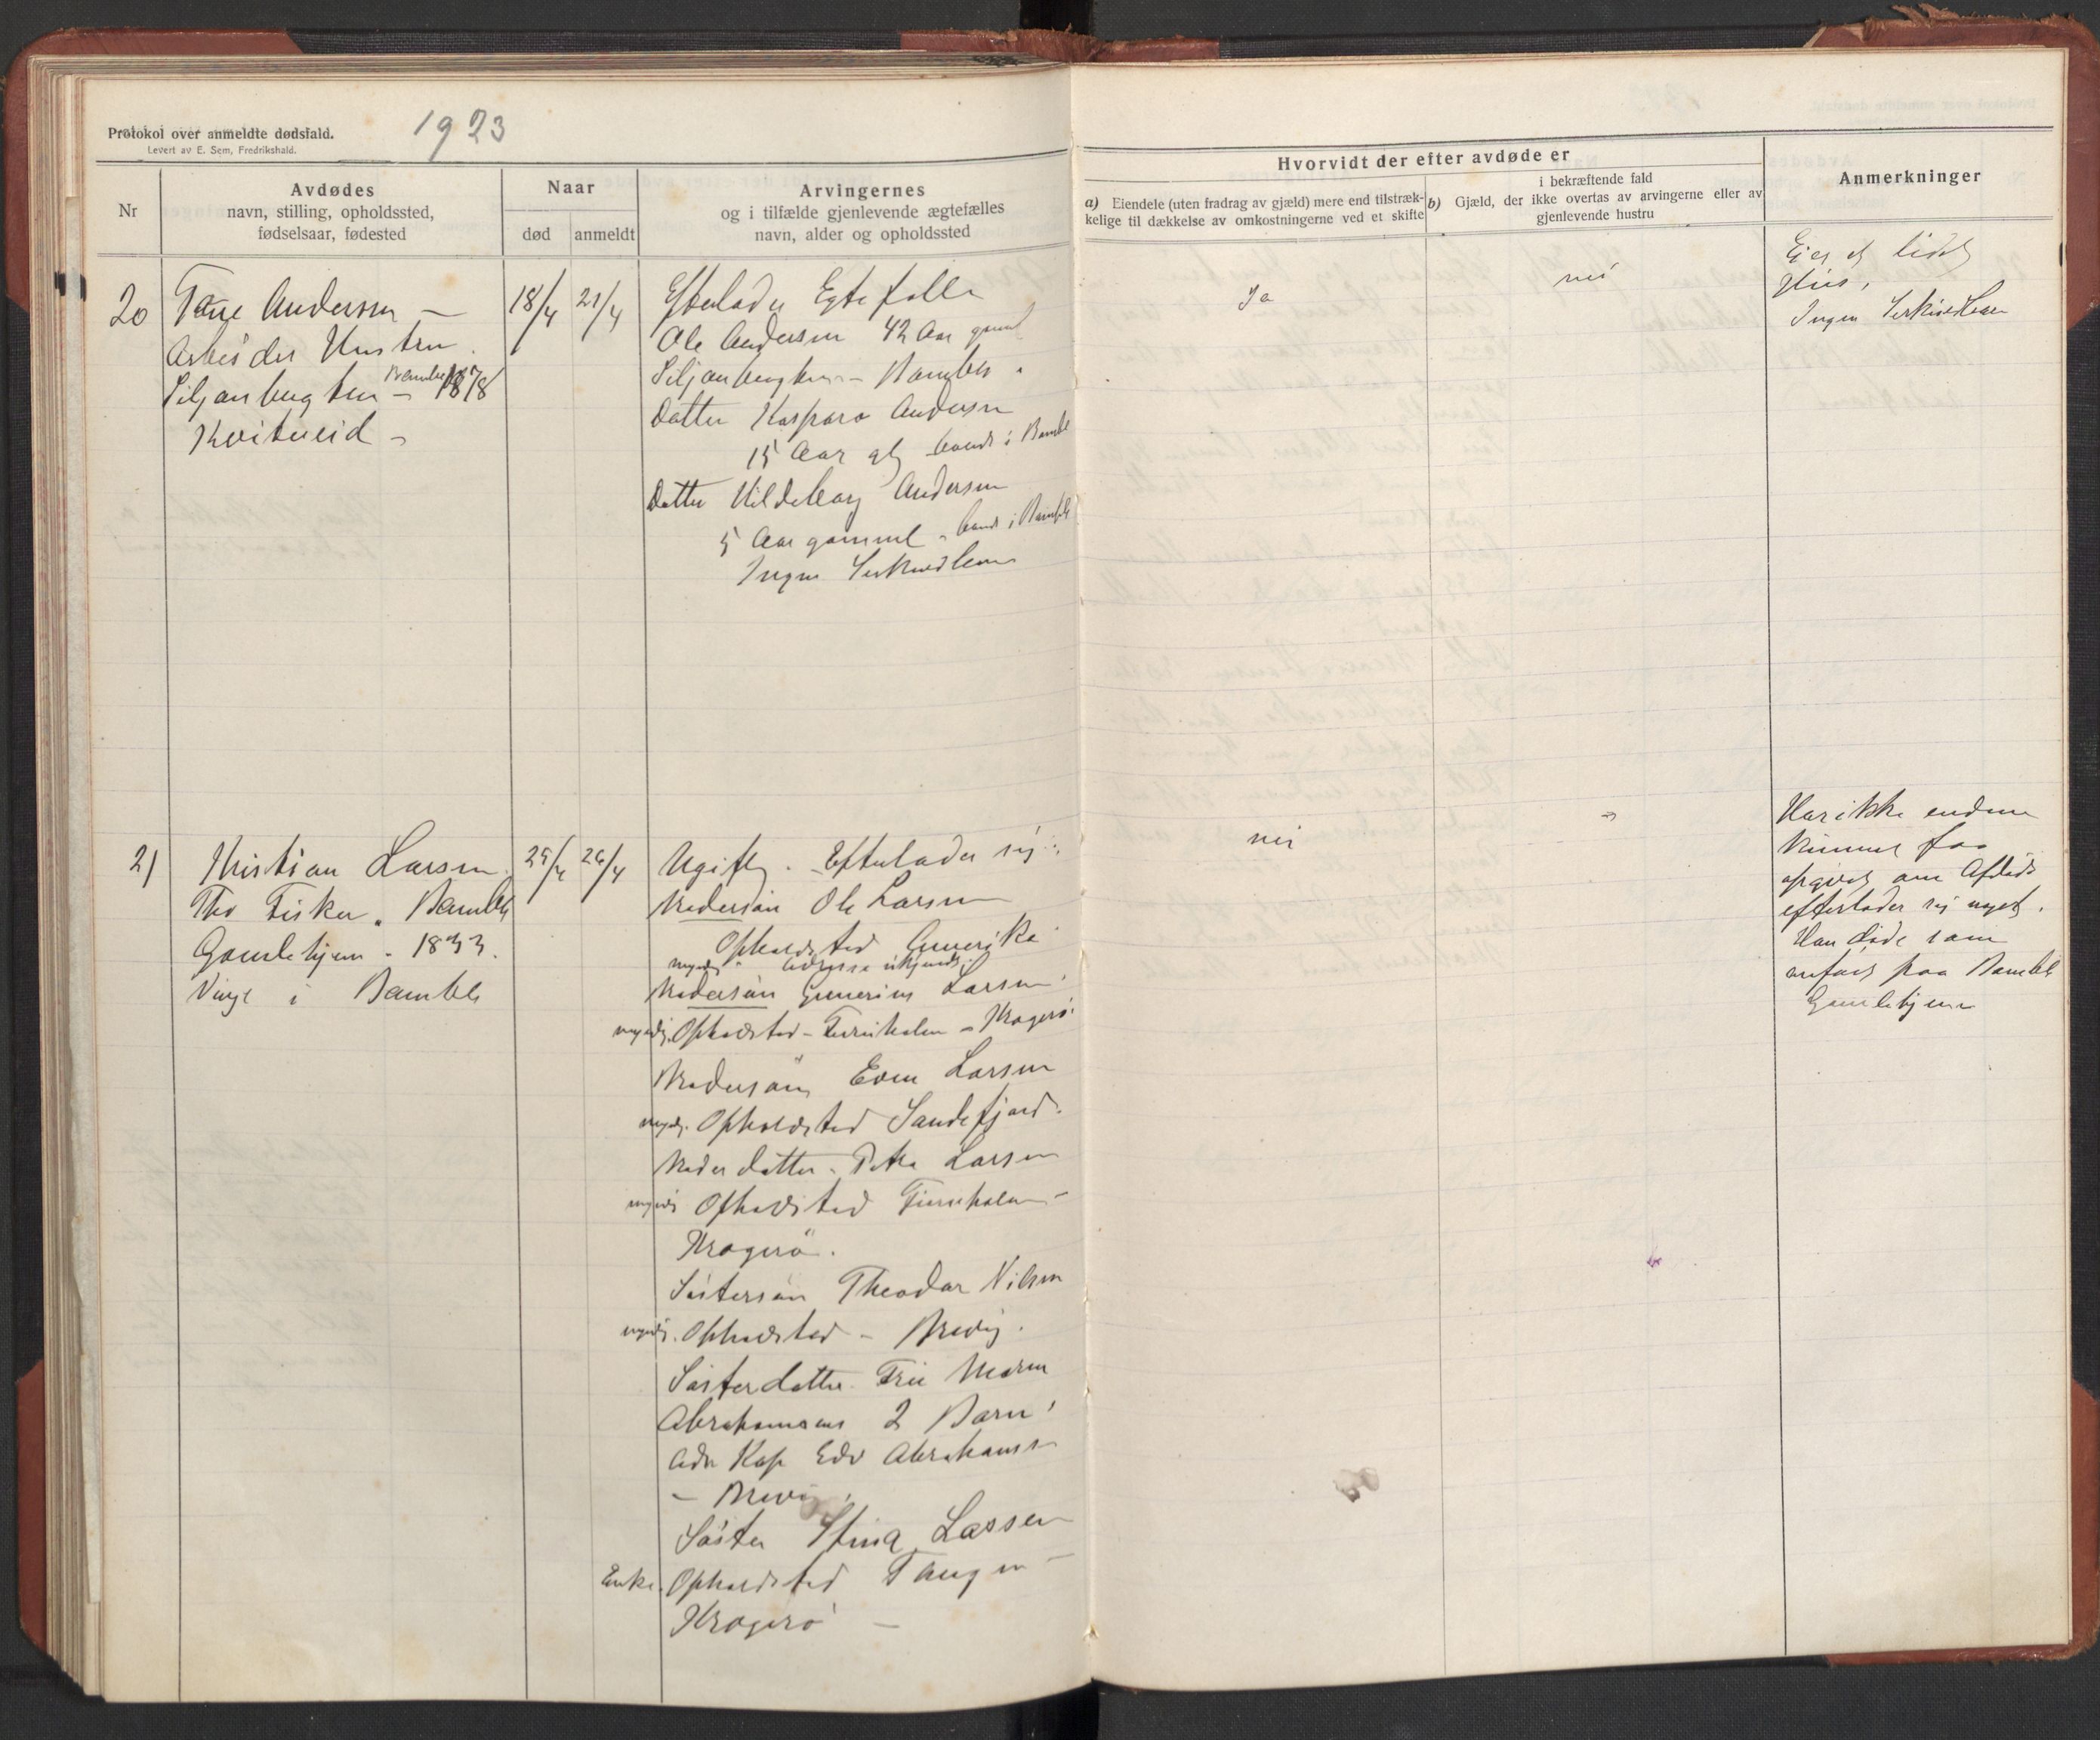 Protokol over anmeldte dødsfald.
Levert av E. Sem, Fredrikshald.
1923
Nr
Avdødes
navn, stilling, opholdssted,
fødselsaar, fødested
Naar
død
anmeldt
Arvingernes
og i tilfælde gjenlevende ægtefælles
navn, alder og opholdssted
Hvorvidt der efter avdøde er
a) Eiendele (uten fradrag av gjæld) mere end tilstræk-
kelige til dækkelse av omkostningerne ved et skifte
i bekræftende fald
b) Gjæld, der ikke overtas av arvingerne eller av
gjenlevende hustru
Anmerkninger
20
Tone Andersen –
Arbeider Hustru
Siljanbugten – Bamble 1878
Kviteseid –
18/4
21/4
Efterlader Egtefælle
Ole Andersen 42 Aar gml
Siljanbugten – Bamble.
Datter Kaspara Andersen
15 Aar gl boende i Bamble
Datter Hildeborg Andersen
5 Aar gammel – boende i Bamble
Ingen
Ja
nei
Eier et lidet
Hus,
Ingen
21
Kristian Larsen
Fisker. Bamble
Gamlehjem – 1833.
Vinje i Bamble
25/4
26/4
Ugift. Efterlader sig:
Brodersøn Ole Larsen
Opholdsted Amerika
myndig – Adresse ukjendt.
Brodersøn Gunerius Larsen
myndig. Opholdsted – Furuholmen – Kragerø.
Brodersøn Even Larsen
myndig. Opholdsted Sandefjord.
Broderdatter. Larsen
myndig Opholdsted Furuholmen –
Kragerø.
Søstersøn Theodor Nilsen
myndig. Opholdsted – Brevig.
Søsterdatter Fru Maren
Abrahamsens 2 Barn
Adr Kap Edv Abrahamsen
– Brevig.
Søster Stina Larsen
Enke. Opholdsted Tangen –
Kragerø –
nei
Har ikke endnu
kunnet faa
opgivet om Afdøde
efterlader sig noget.
Han døde som
anført paa Bamble
Gamlehjem